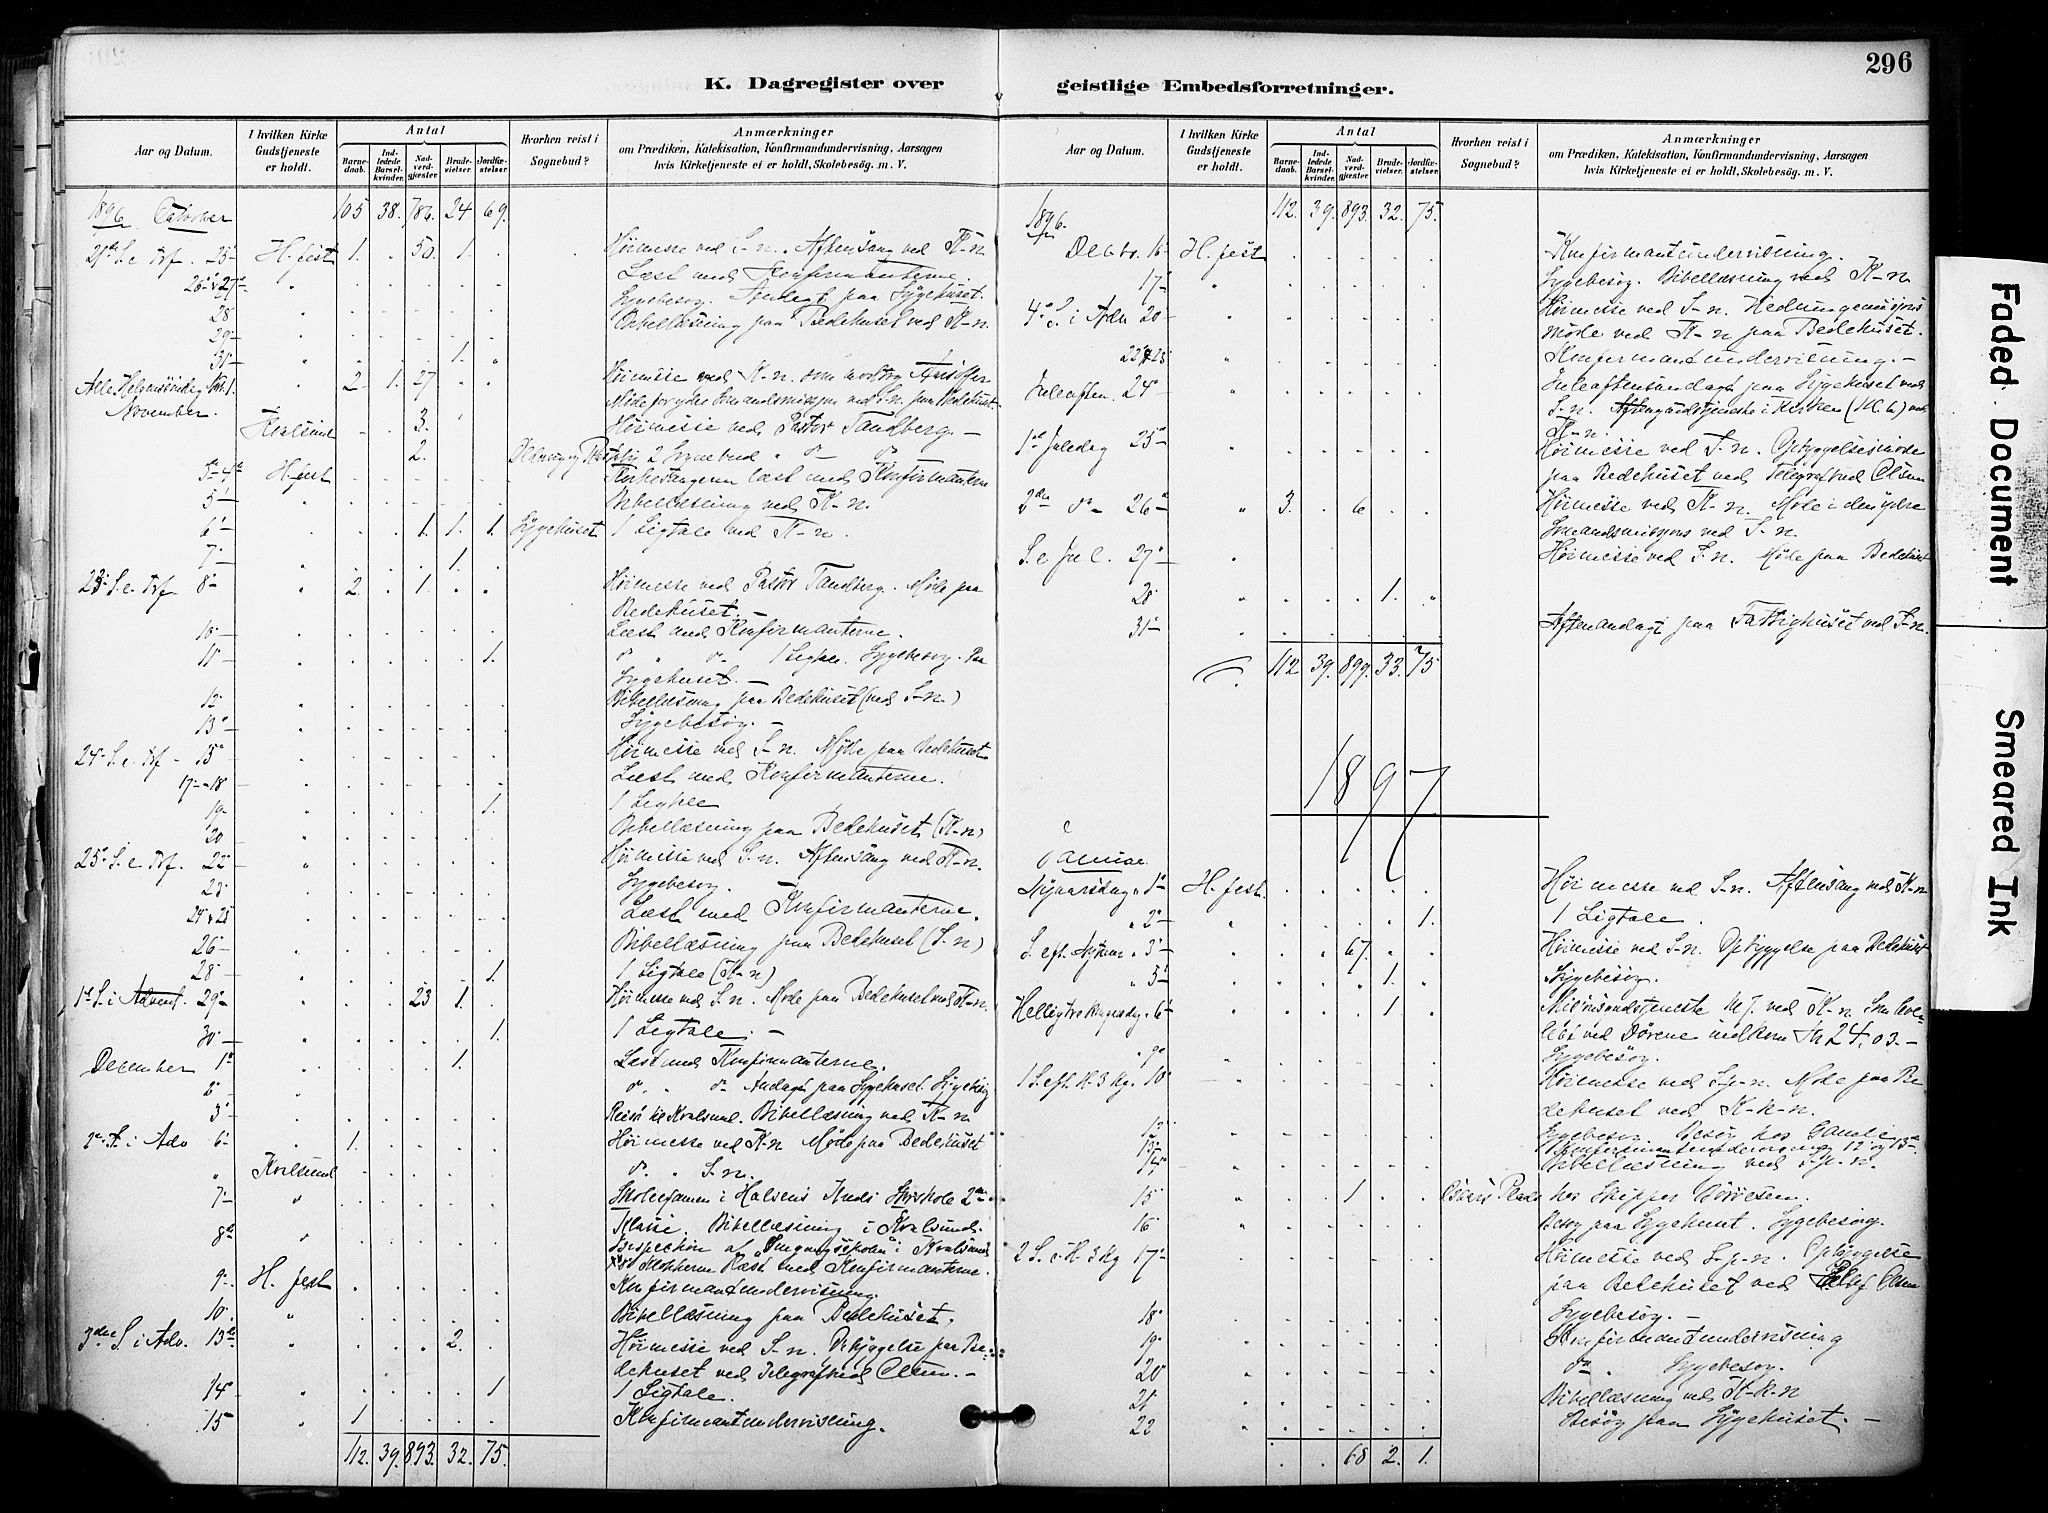 296
K. Dagregister over geistlige Embedsforretninger.
Aar og Datum.
I hvilken Kirke Gudstjeneste er holdt.
Antal
Barnedaab.
Indledede Barselkvinder.
Nadverdgjæster.
Brudevielser.
Jordfæstelser.
Hvorhen reist i Sognebud?
Anmærkninger
om Prædiken, Katekisation, Konfirmandundervisning, Aarsagen
hvis Kirketjeneste ei er holdt, Skolebesög. m. V.
1896 October 105 38. 786. 24 69.
21de S. e Trf. 25 H.fest 1. 50. 1. Høimesse ved S-n. Aftensang ved K-n
Læst med Konfirmanterne.
Sygebesøg. Andagt paa Sygehuset.
28 Bibellæsning paa Bedehuset ved K-n.
29
31 1.
Alle Helgensøndag 1. 2. 1. 27 Høimesse ved K-n.
November.
Kvalsund 3. Høimesse ved Pastor Tandberg. -
2. 2 Sognebud
H.fest læst med Konfirmanterne
5 Bibellæsning ved K-n.
6 1. 1. 1. Sygehuset 1 Ligtale ved K-n.
7 1.
23 S. e. Trf 8 2. 1. Høimesse ved Pastor Tandberg. Møde paa
Bedehuset. -
10 Læst med Konfirmanterne.
11 1. 1 Ligtale. Sygebesøg. Paa
Sygehuset. -
12 Bibellæsning paa Bedehuset (ved S-n.)
13 Sygebesøg. -
24 S. e. Trf 15 Høimesse ved S-n. Møde paa Bedehuset
17 18 Læst med Konfirmanterne.
19 1. 1 Ligtale
20 Bibellæsning paa Bedehuset (K-n)
25 S. e. Trf. 22 Høimesse ved S-n. Aftensang ved K-n.
23 Sygebesøg.
24 & 25 Læst med Konfirmanterne.
26 Bibellæsning paa Bedehuset (S-n)
28 1. 1 Ligtale (K-n)
1ste S. i Advent. 29 23 1. Høimesse ved S-n. Møde paa Bedehuset ved K-n.
30 1. 1 Ligtale. -
December 1 1. Læst med Konfirmanterne.
2 Andagt paa Sygehuset. Sygebesøg
3 Reist til Kvalsund. Bibellæsning ved K-n
2 S. i Adv 6 1. Høimesse ved K-n Møde paa Bedehuset
Kvalsund S-n.
7 Skoleexamen i
Klasse. Bibellæsning i Kvalsund.
8de Inspektion af i Kvalsund
Læst med Konfirmanterne.
9 H. fest Konfirmantundervisning.
10 Bibellæsning paa Bedehuset.
3die S. i Adv. 13de 2. Høimesse ved S-n. Opbyggelse paa Be-
dehuset ved Telegrafbud Olsen. -
14 1 1 Ligtale.
15 1 Konfirmantundervisning.
112. 39. 893. 32. 75.
Aar og Datum.
I hvilken Kirke Gudstjeneste er holdt.
Antal
Barnedaab.
Indledede Barselkvinder.
Nadverdgjæster.
Brudevielser.
Jordfæstelser.
Hvorhen reist i Sognebud?
Anmærkninger
om Prædiken, Katekisation, Konfirmandundervisning, Aarsagen
hvis Kirketjeneste ei er holdt, Skolebesög. m. V.
1896. 112. 39. 893. 32. 75.
Decbr. 16 H. fest Konfirmantundervisning.
17 Sygebesøg. Bibellæsning ved K-n
4 S. i Adv 20 Høimesse ved S-n. Hedningemisjons
møde ved K-n paa Bedehuset.
Konfirmantundervisning. -
Juleaften 24 Juleaftensandagt paa Sygehuset ved
S-n. Aftengudstjeneste i Kirken
K-n.
1ste Juledag 25 Høimesse ved S-n. Opbyggelsesmøde
paa Bedehuset ved Telegrafbud Olsen
2den 26 3. 6 Høimesse ved K-n. Møde i den ydre
Sømandsmisjons ved S-n.
S. e Jul. 27 Høimesse ved S-n. Møde paa Bedehuset
28 1.
31 Aftenandagt paa Fattighuset ved S-n.
112 39. 899. 33. 75
1897
Januar.
Nytaarsdag 1 H. fest Høimesse ved S-n. Aftensang ved K-n
2 1. 1 Ligtale.
S. eft. Nytaar 3 67. Høimesse ved S-n. Opbyggelse paa Bedehuset
5 1. Sygebesøg.
Helligtrekongersdag 6 1. ved K-n
ved Dørene indkom Kr 24,03. -
9 Sygebesøg.
1 S. eft. H. 3 Kg. 10 Høimesse ved S.p.n. Møde paa Be
dehuset ved K-k-n.
12 Sygebesøg. Besøg hos
13 Konfirmantundervisning 12 og 13
14 Bibellæsning ved S.p.n.
15 1 hos Skipper
16 Besøg paa Sygehuset. Sygebesøg.
2 S. e H. 3 Kg 17 Høimesse ved S.p.n. Opbyggelse
paa Bedehuset ved Olsen
18 Sygebesøg. -
19 Konfirmantundervisning
20 Sygebesøg.
21 Bibellæsning ved K-k-n
22 Besøg paa Sygehuset. -
68 2. 1.
Faded Document
Smeared Ink